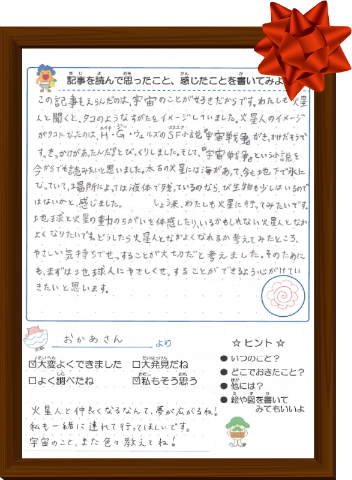 記事を読んで思ったこと、感じたことを書いてみよ
この記事をえらんだのは、宇宙のことが好きだからです。わたしも火星
人と聞くと、タコのようなすがたをイメージしていました。火星人のイメージ
がタコになったのは、H・G・ウェルズのSF小説『宇宙戦争』がきっかけだそうで
す。きっかけがあったんだ!とびっくりしました。そして、『宇宙戦争』という小説を
今からでも読みたいと思いました。太古の火星には海があって、今も地下で氷に
なっていて、場所によっては液体で残っているのなら、び生物も少しはいるので
はないかと、感じました。しょう来、わたしも火星に行ってみたいです。
地球と火星の重力のちがいを体感したり、いるかもしれない火星人となか
よくなりたいです。どうしたら火星人となかよくなれるか考えてみたところ、
やさしい気持ちでせっすることが大切だと考えました。そのために
も、まずは地球人にやさしくせっすることができるよう心がけてい
きたいと思います。
おかあさん より
大変よくできました
大発見だね
よく調べたね
私もそう思う
火星人と仲良くなるなんて、夢が広がるね!
私も一緒に連れて行ってほしいです。
宇宙のこと、また色々教えてね!
☆ ヒント ☆
● いつのこと?
● どこでおきたこと?
● 他には?
● 絵や図を書いて
みてもいいよ